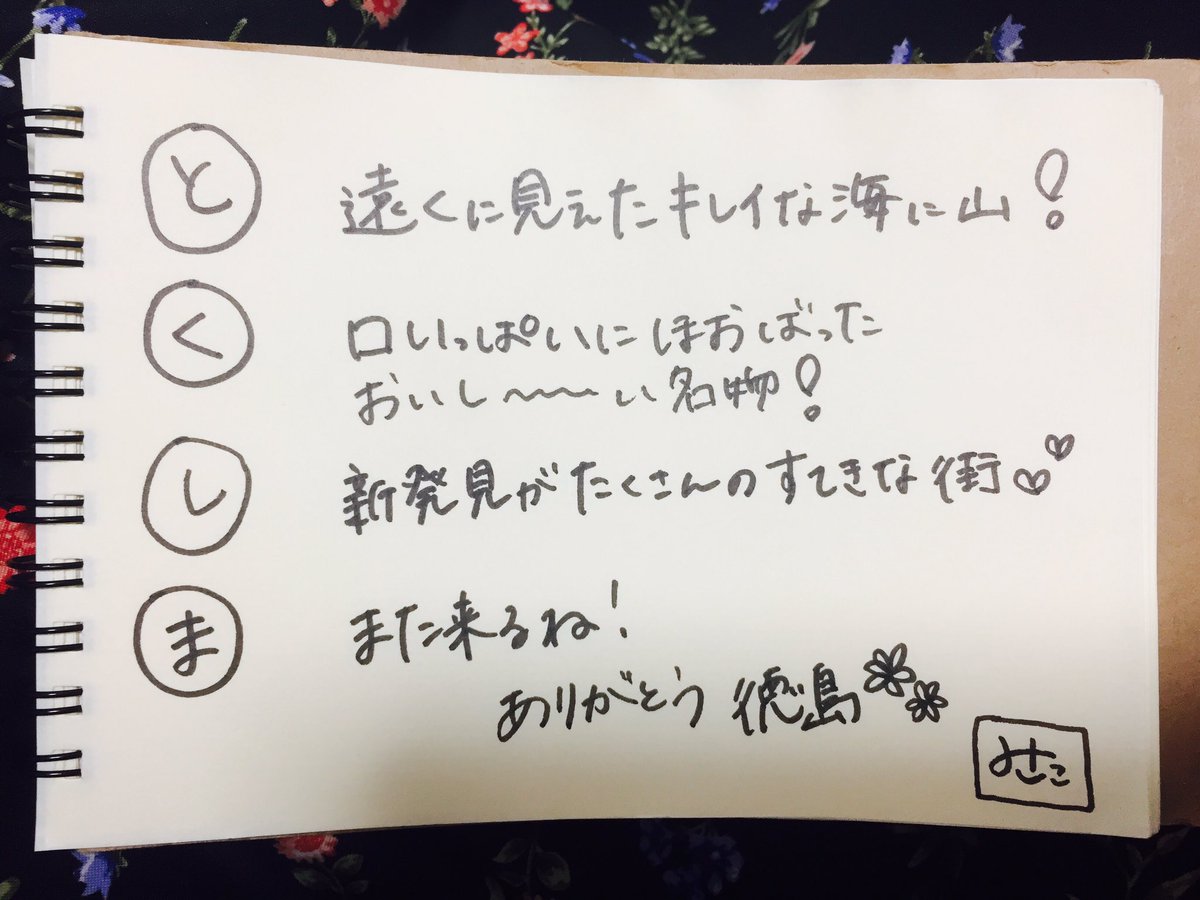 と 遠くに見えたキレイな海に山!
く 口いっぱいにほおばった
おいし〜〜い名物!
し 新発見がたくさんのすてきな街♡♡
ま また来るね!
ありがとう 徳島
みさこ